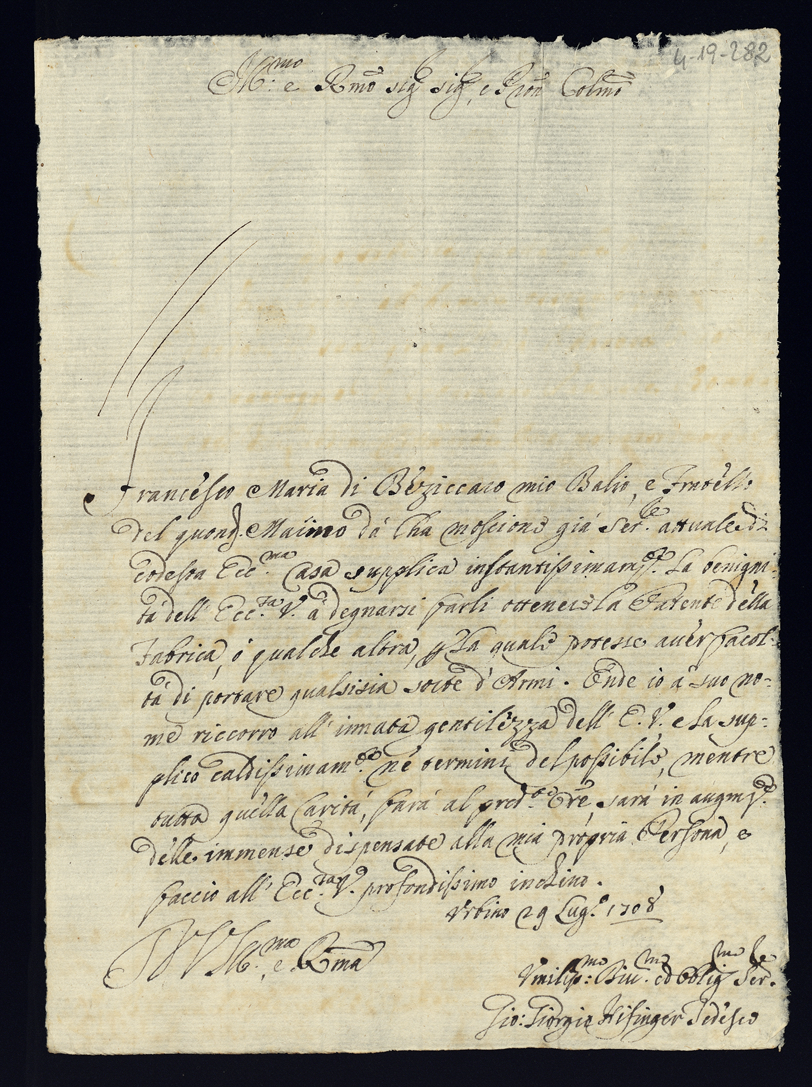 4-19-282
Ill:mo e Rmo sig.r sig.r, e Pron Colmo
Francesco Maria di Beziccaro mio Balio, e Fratello
del quond. Maiino da Cha moscione già Ser.le attuale di
codesta Ecc.ma Casa supplica instantissimam.te la benigni-
tà dell' Ecc.za V. à degnarsi farli ottenere la Patente della
Fabrica, ò qualche altra, p la quale potesse aver facol-
tà di portare qualsisia sorte d' Armi. Onde io à suo no-
me riccorro all' innata gentilezza dell' E. V. e la sup-
plico caldissimam.te ne termini del possibile, mentre
tutta quella Carità, farà al pred.to Ore, sarà in augm.to
delle immense dispensate alla mia propria Persona, e
faccio all' Ecc.za V. profondissimo inchino.
Urbino 29 Lug.o 1708
V. Ill.ma, e Rma
Umiliss:mo Div.mo ed Oblig.mo Ser.re
Gio: Giorgio Hisinger Tedesco